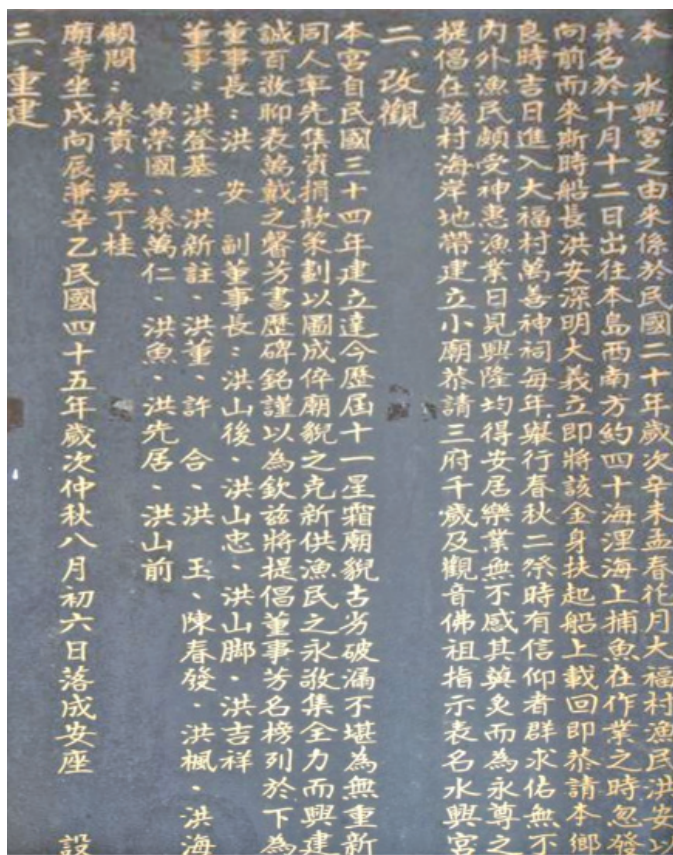 本 水興宮之由來係於民國二十年歲次辛未孟春花月大福村漁民洪安以
柒名於十月十二日出往本島西南方約四十海浬海上捕魚在作業之時忽發
向前而來斯時船長洪安深明大義立即將該金身扶起船上載回即恭請本鄉
良時吉日進入大福村萬善神祠每年舉行春秋二祭時有信仰者群求佑無不
內外漁民頗受神惠漁業日見興隆均得安居樂業無不感其與炙而為永尊之
提倡在該村海岸地帶建立小廟恭請三府千歲及觀音佛祖指示表名水興宮
二、改觀
本宮自民國三十四年建立達今歷屆十一星霜廟貌古劣破漏不堪為無重新
同人率先集資捐款策劃以圖成倅廟貌之克新供漁民之永敬集全力而興建
誠百敬聊表萬戴之馨芳書歷碑銘謹以為欽茲將提倡董事芳名榜列於下為
董事長：洪 安 副董事長：洪山後、洪山忠、洪山腳、洪吉祥
董事：洪登基、洪新註、洪董、許 合、洪 玉、陳春發、洪楓、洪海
黃榮國、蔡萬仁、洪魚、洪先居、洪山前
顧問：蔡貴、吳丁桂
廟寺坐戌向辰兼辛乙民國四十五年歲次仲秋八月初六日落成安座 設
三、重建